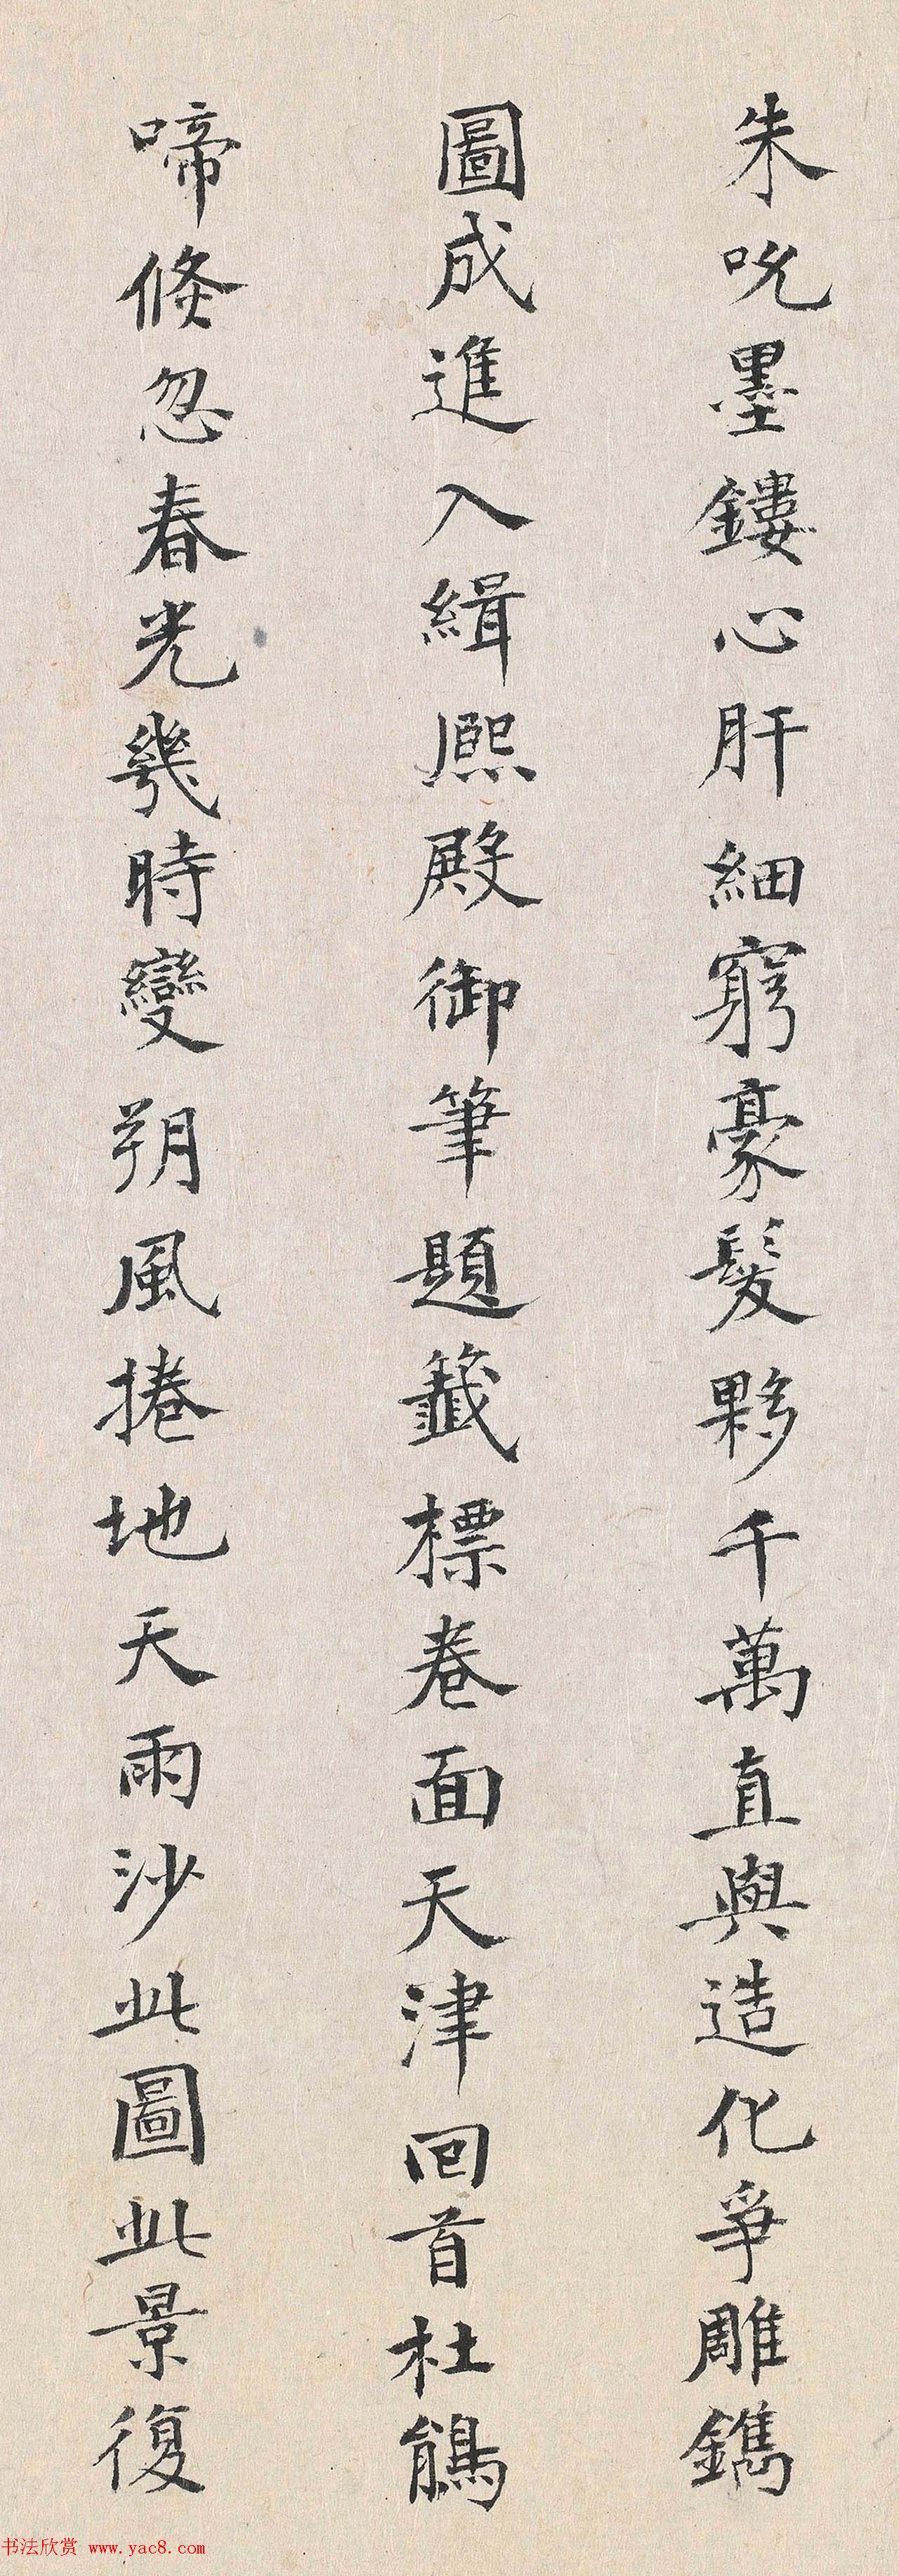 朱吮墨鏤心肝細窮豪髮夥千萬直與造化爭雕鐫
圖成進入緝熙殿御筆題籤標卷面天津回首杜鵑
啼倏忽春光幾時變朔風捲地天雨沙此圖此景復
书法欣赏 www.yac8.com